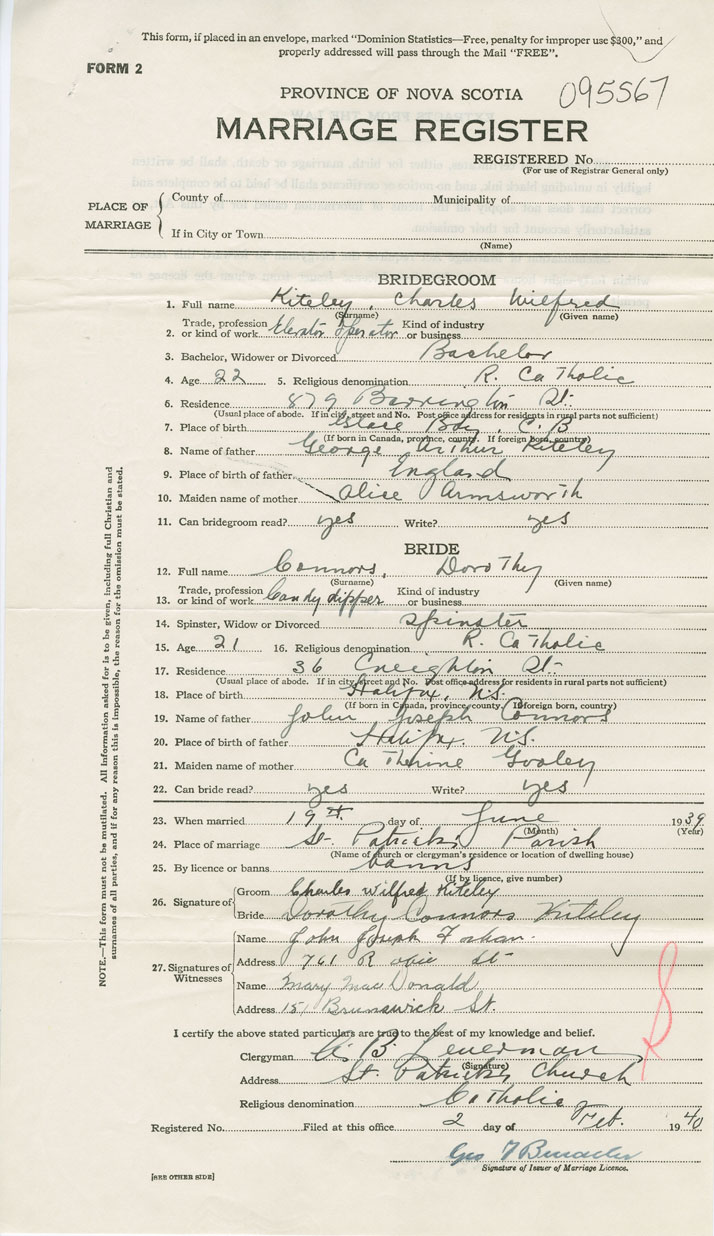 This form, if placed in an envelope, marked "Dominion Statistics—Free, penalty for improper use $300," and
properly addressed will pass through the Mail "FREE".
FORM 2
PROVINCE OF NOVA SCOTIA 095567
MARRIAGE REGISTER
REGISTERED No.
(For use of Registrar General only)
PLACE OF MARRIAGE
County of Municipality of
If in City or Town
(Name)
BRIDEGROOM
1. Full name Kiteley, Charles Wilfred
(Surname) (Given name)
2. Trade, profession or kind of work Elevator Operator Kind of industry or business
3. Bachelor, Widower or Divorced Bachelor
4. Age 22 5. Religious denomination R. Catholic
6. Residence 879 Barrington St.
(Usual place of abode. If in city, street and No. Post office address for residents in rural parts not sufficient)
7. Place of birth Glace Bay, C.B
(If born in Canada, province, county. If foreign born, country)
8. Name of father George Arthur Kiteley
9. Place of birth of father England
10. Maiden name of mother Alice Armsworth
11. Can bridegroom read? yes Write? yes
BRIDE
12. Full name Connors, Dorothy
(Surname) (Given name)
13. Trade, profession or kind of work Candy dipper Kind of industry or business
14. Spinster, Widow or Divorced Spinster
15. Age 21 16. Religious denomination R. Catholic
17. Residence 36 Creighton St.
(Usual place of abode. If in city, street and No. Post office address for residents in rural parts not sufficient)
18. Place of birth Halifax, N.S.
(If born in Canada, province, county. If foreign born, country)
19. Name of father John Joseph Connors
20. Place of birth of father Halifax. N.S.
21. Maiden name of mother Catherine Gooley
22. Can bride read? yes Write? yes
23. When married 19th day of June 1939
(Month) (Year)
24. Place of marriage St. Patricks Parish
(Name of church or clergyman's residence or location of dwelling house)
25. By licence or banns banns
(If by licence, give number)
26. Signature of
Groom Charles Wilfred Kiteley
Bride Dorothy Connors Kiteley
27. Signatures of Witnesses
Name John Joseph
Address 761 St
Name Mary MacDonald
Address 151 Brunswick St.
I certify the above stated particulars are true to the best of my knowledge and belief.
Clergyman
(Signature)
Address St. Patricks Church
Religious denomination Catholic
Registered No. Filed at this office 2 day of Feb. 1940
Geo
Signature of Issuer of Marriage Licence.
[SEE OTHER SIDE]
NOTE.—This form must not be mutilated. All Information asked for is to be given, including full Christian and
surnames of all parties, and if for any reason this is impossible, the reason for the omission must be stated.